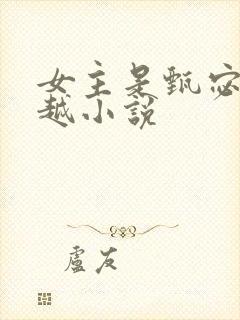 女主是甄宓
越小說
盧友